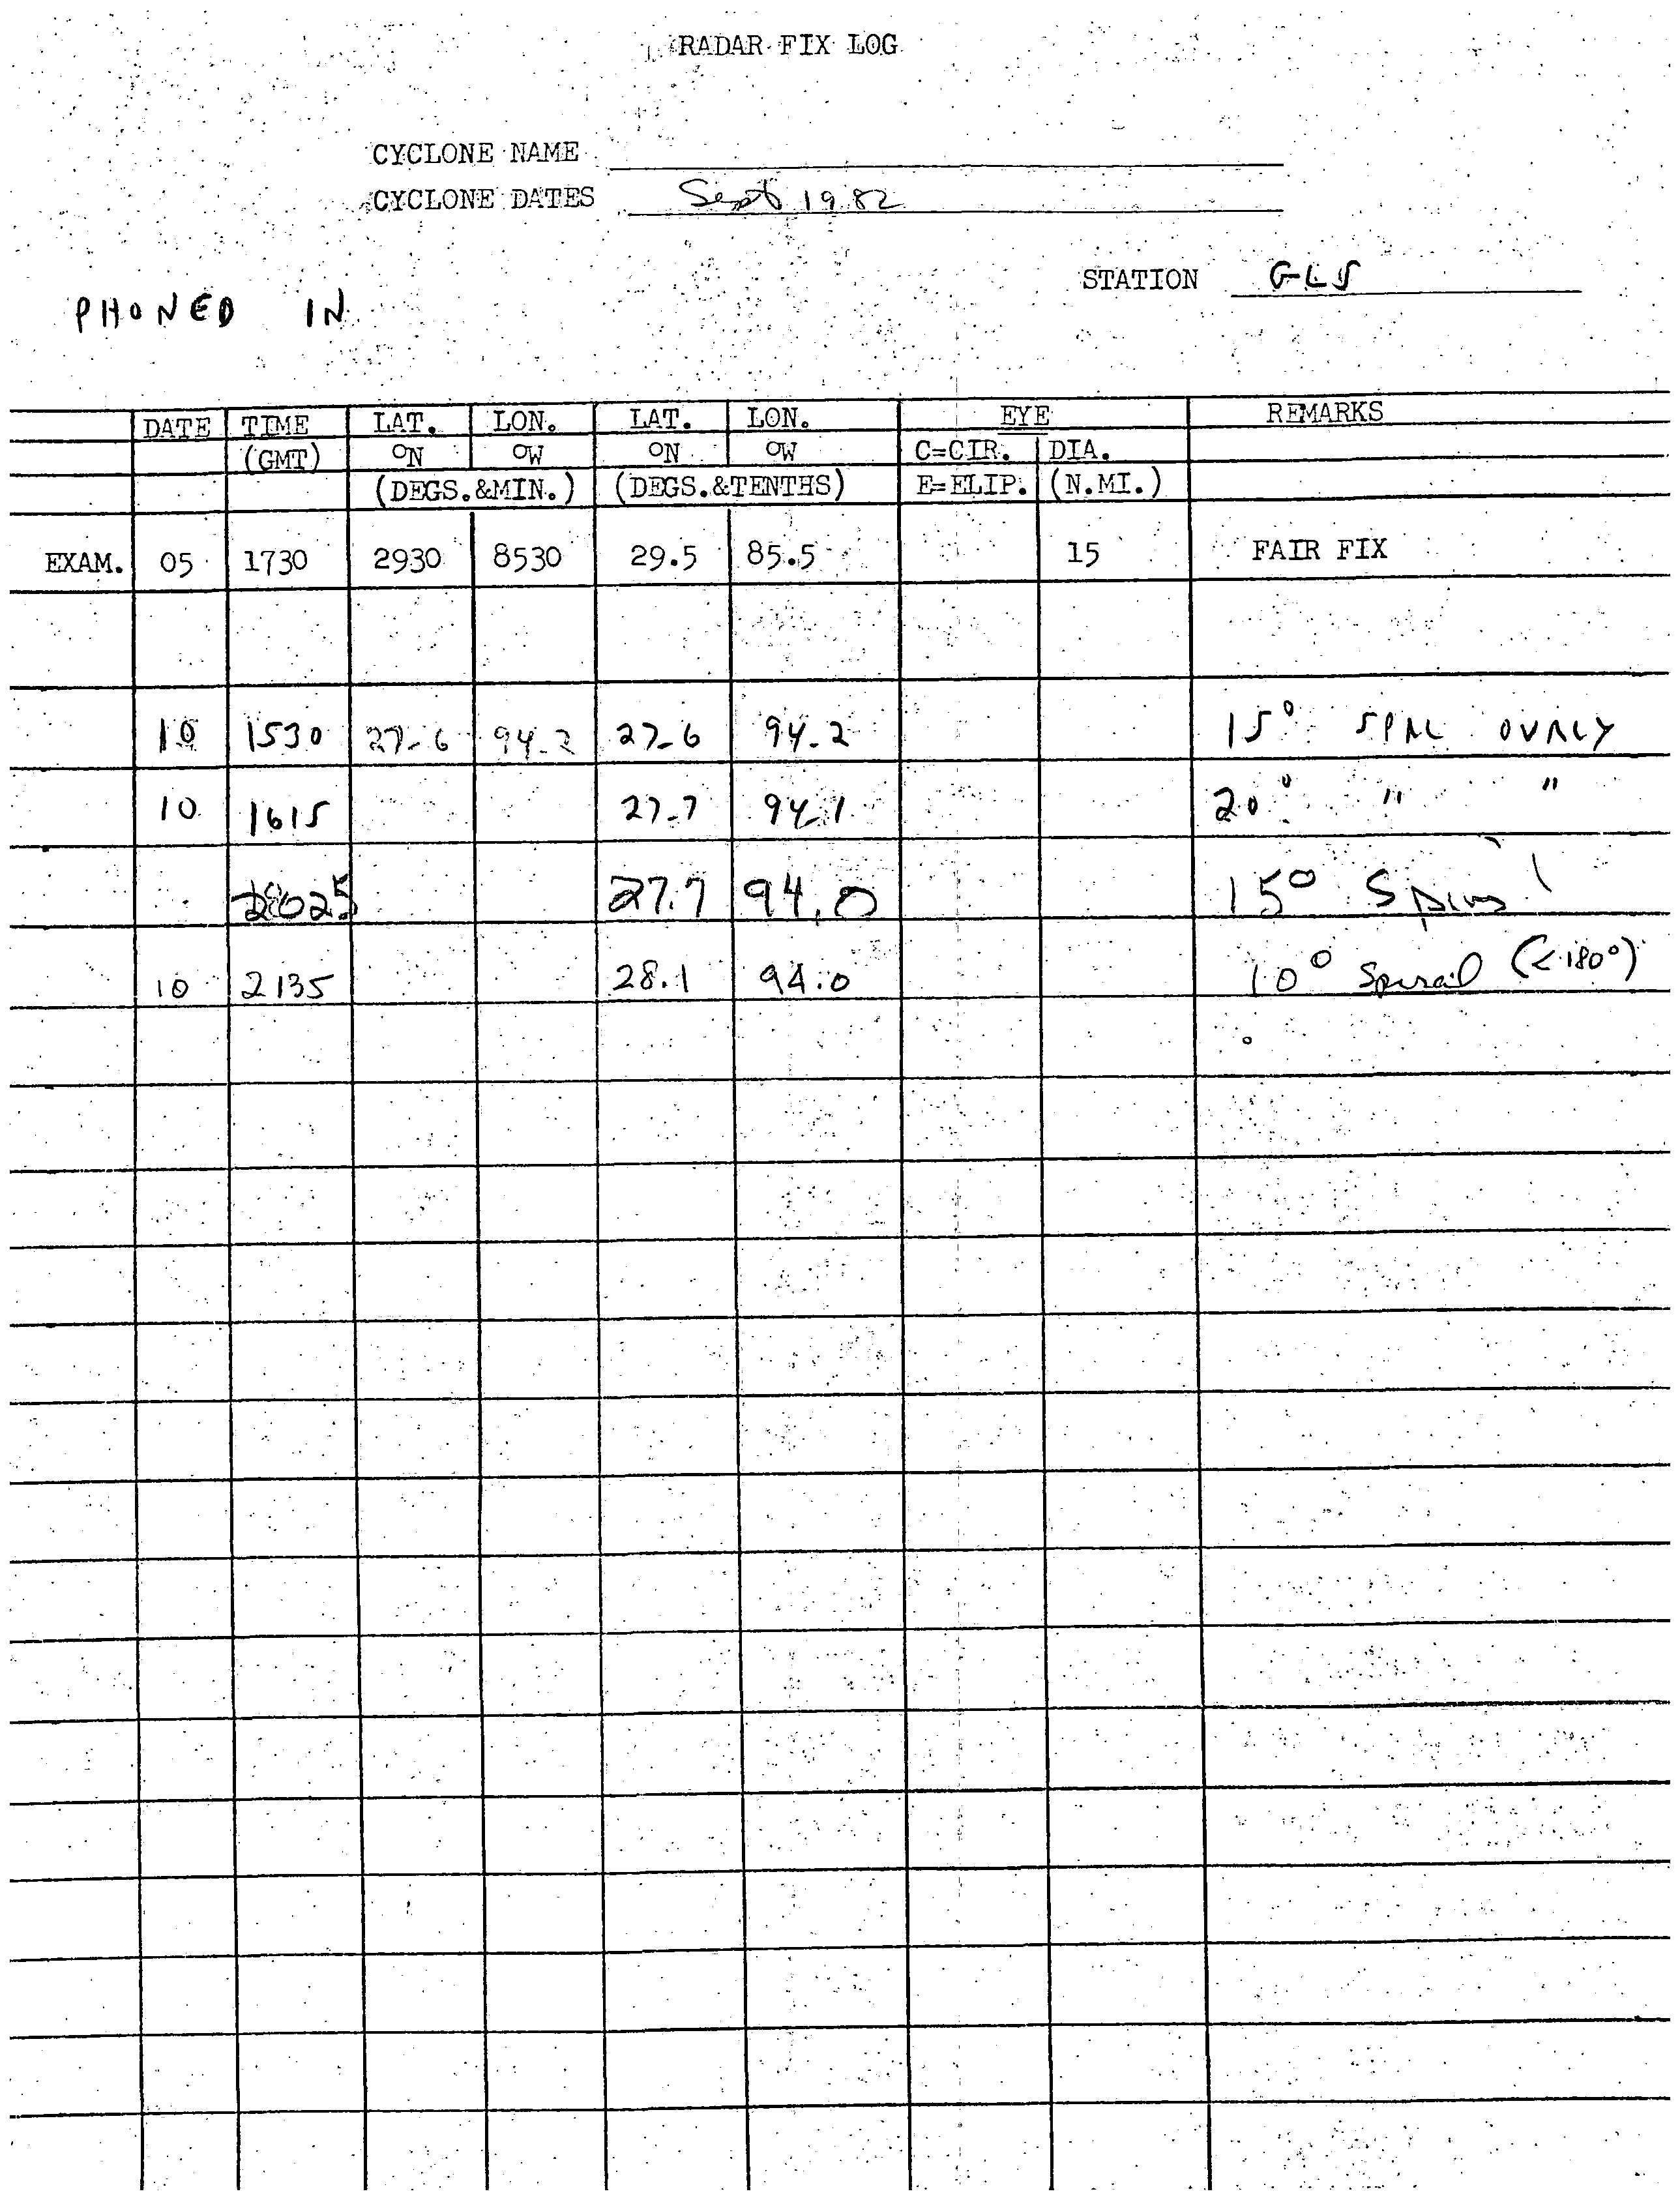 RADAR FIX LOG
CYCLONE NAME
CYCLONE DATES Sept 1982
STATION GLS
PHONED IN
DATE TIME LAT. LON. LAT. LON. EYE REMARKS
(GMT) ON OW ON OW C=CIR. DIA.
(DEGS.&MIN.) (DEGS.&TENTHS) E=ELIP. (N.MI.)
EXAM. 05 1730 2930 8530 29.5 85.5 15 FAIR FIX
10 1530 27-6 94-2 27-6 94-2 15° SPRL OVRLY
10 1615 27-7 94-1 20° " "
2025 27.7 94.0 15° Spiral
10 2135 28.1 94.0 10° Spiral (<180°)